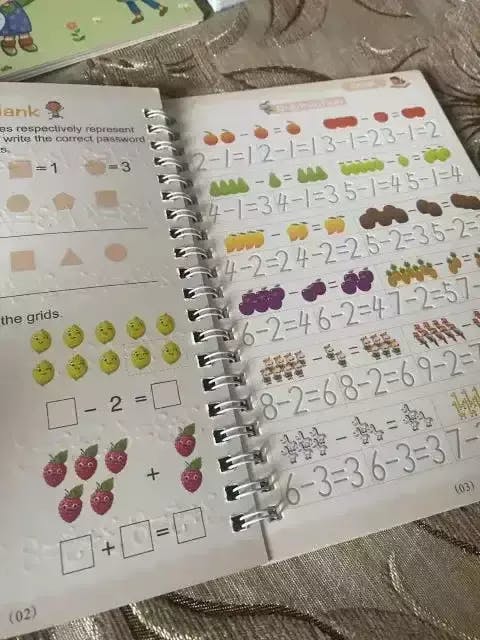 lank
es respectively represent
write the correct password
s.
=1
=3
the grids.
- 2 =
+
+ =
(02)
- =
- =
2-1=1 2-1=1 3-1=2 3-1=2
- =
- =
4-1=3 4-1=3 5-1=4 5-1=4
- =
- =
4-2=2 4-2=2 5-2=3 5-2=
- =
- =
6-2=4 6-2=4 7-2=5 7-
- =
-
8-2=6 8-2=6 9-2=7
- =
6-3=3 6-3=3 7-
(03)